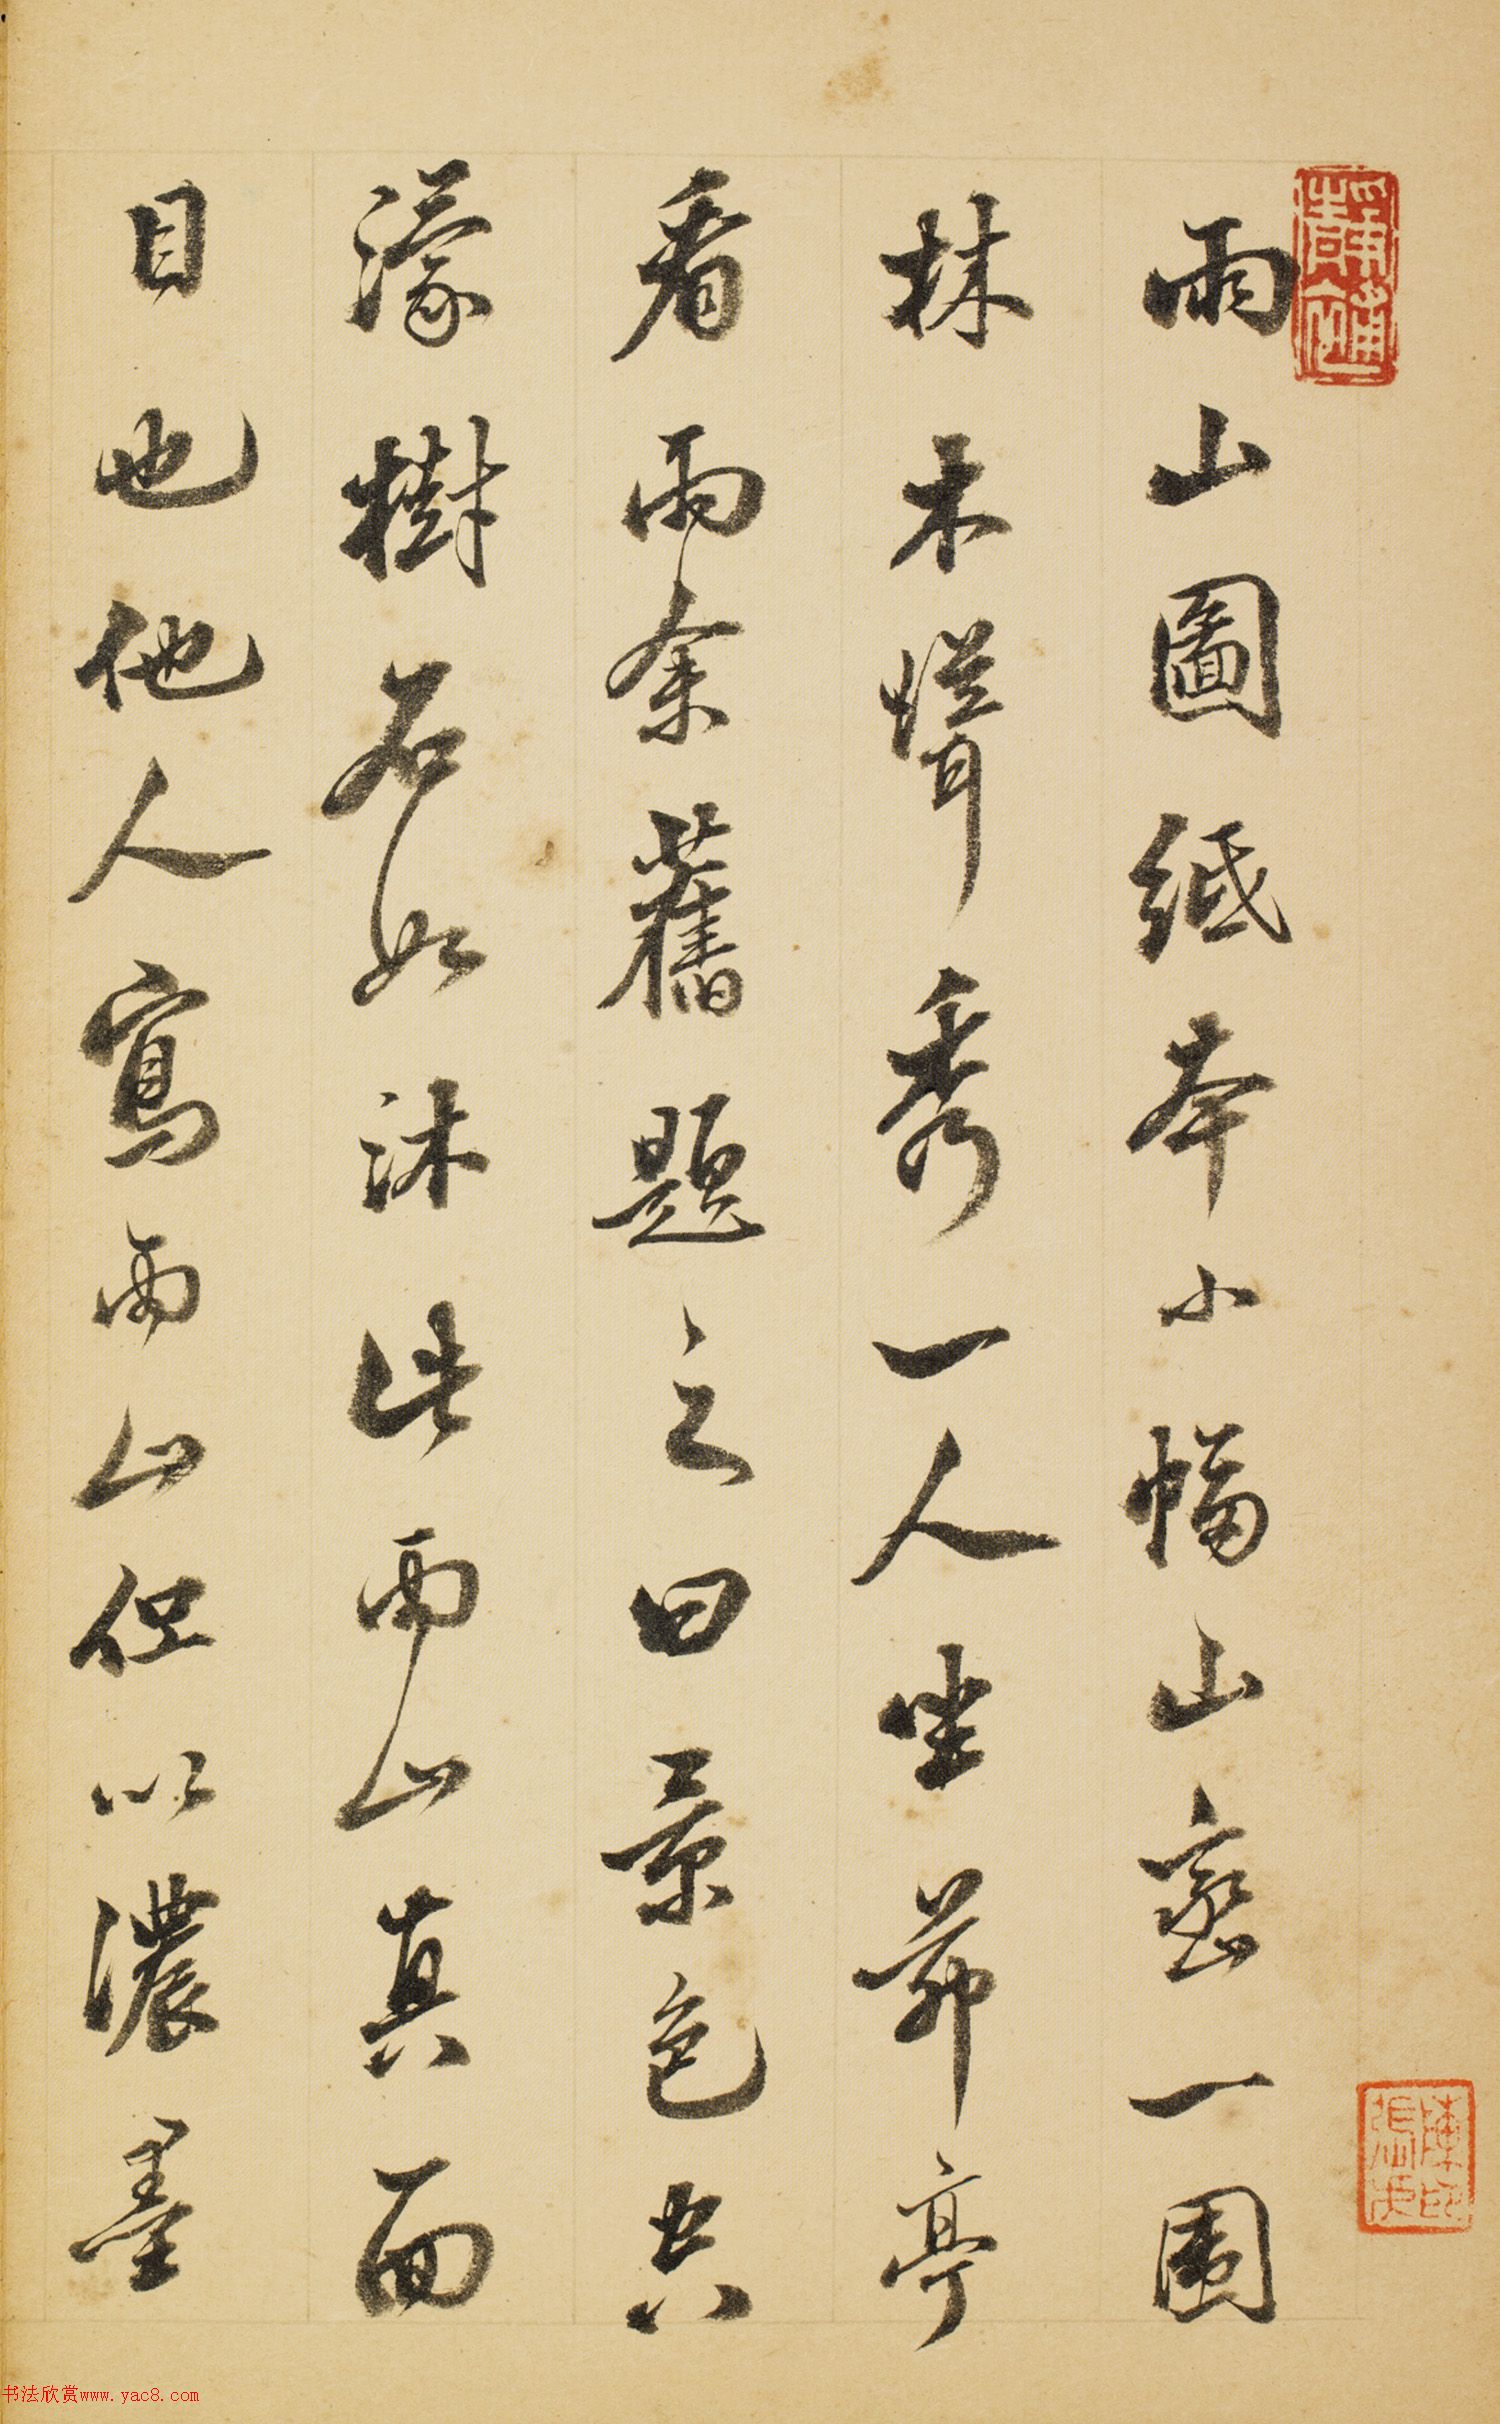 雨山圖紙本小幅山巒一圍
林木聳秀一人坐茆亭
看雨余舊題之曰景色空
濛樹石如沐此雨山真面
目也他人寫雨山但以濃墨
书法欣赏www.yac8.com